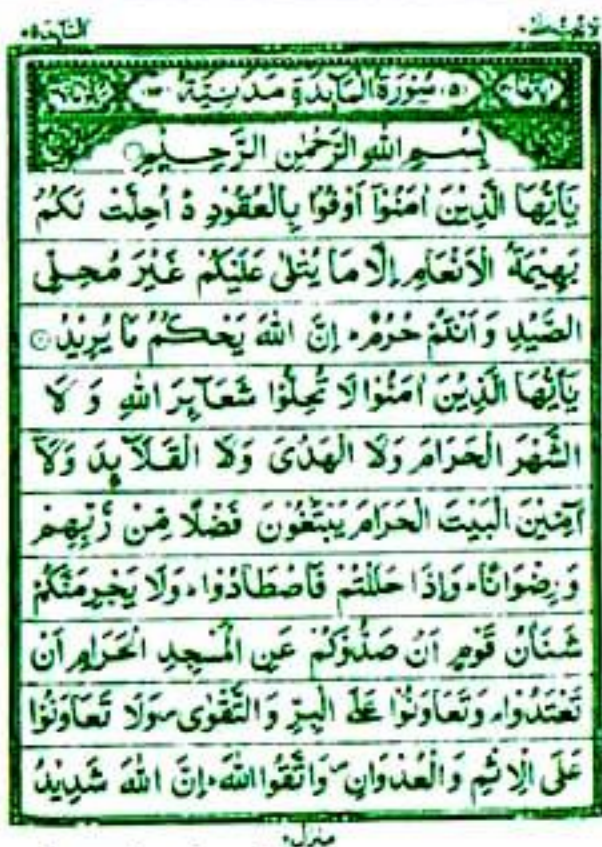 المائدة ٥
لا يحب الله ٦
(٥) سُوْرَةُ الْمَآئِدَةِ مَدَنِيَّةٌ
بِسْمِ اللهِ الرَّحْمٰنِ الرَّحِيْمِ
يٰٓاَيُّهَا الَّذِيْنَ اٰمَنُوْٓا اَوْفُوْا بِالْعُقُوْدِ ۬ؕ اُحِلَّتْ لَكُمْ
بَهِيْمَةُ الْاَنْعَامِ اِلَّا مَا يُتْلٰى عَلَيْكُمْ غَيْرَ مُحِلِّى
الصَّيْدِ وَاَنْتُمْ حُرُمٌ ؕ اِنَّ اللهَ يَحْكُمُ مَا يُرِيْدُ ۝
يٰٓاَيُّهَا الَّذِيْنَ اٰمَنُوْا لَا تُحِلُّوْا شَعَآئِرَ اللهِ وَ لَا
الشَّهْرَ الْحَرَامَ وَلَا الْهَدْىَ وَلَا الْقَلَآئِدَ وَلَآ
آٰمِّيْنَ الْبَيْتَ الْحَرَامَ يَبْتَغُوْنَ فَضْلًا مِّنْ رَّبِّهِمْ
وَرِضْوَانًا ؕ وَاِذَا حَلَلْتُمْ فَاصْطَادُوْا ؕ وَلَا يَجْرِمَنَّكُمْ
شَنَاٰنُ قَوْمٍ اَنْ صَدُّوْكُمْ عَنِ الْمَسْجِدِ الْحَرَامِ اَنْ
تَعْتَدُوْا ۘ وَتَعَاوَنُوْا عَلَى الْبِرِّ وَالتَّقْوٰى ۪ وَلَا تَعَاوَنُوْا
عَلَى الْاِثْمِ وَالْعُدْوَانِ ۪ وَاتَّقُوا اللهَ ؕ اِنَّ اللهَ شَدِيْدُ
منزل ٢